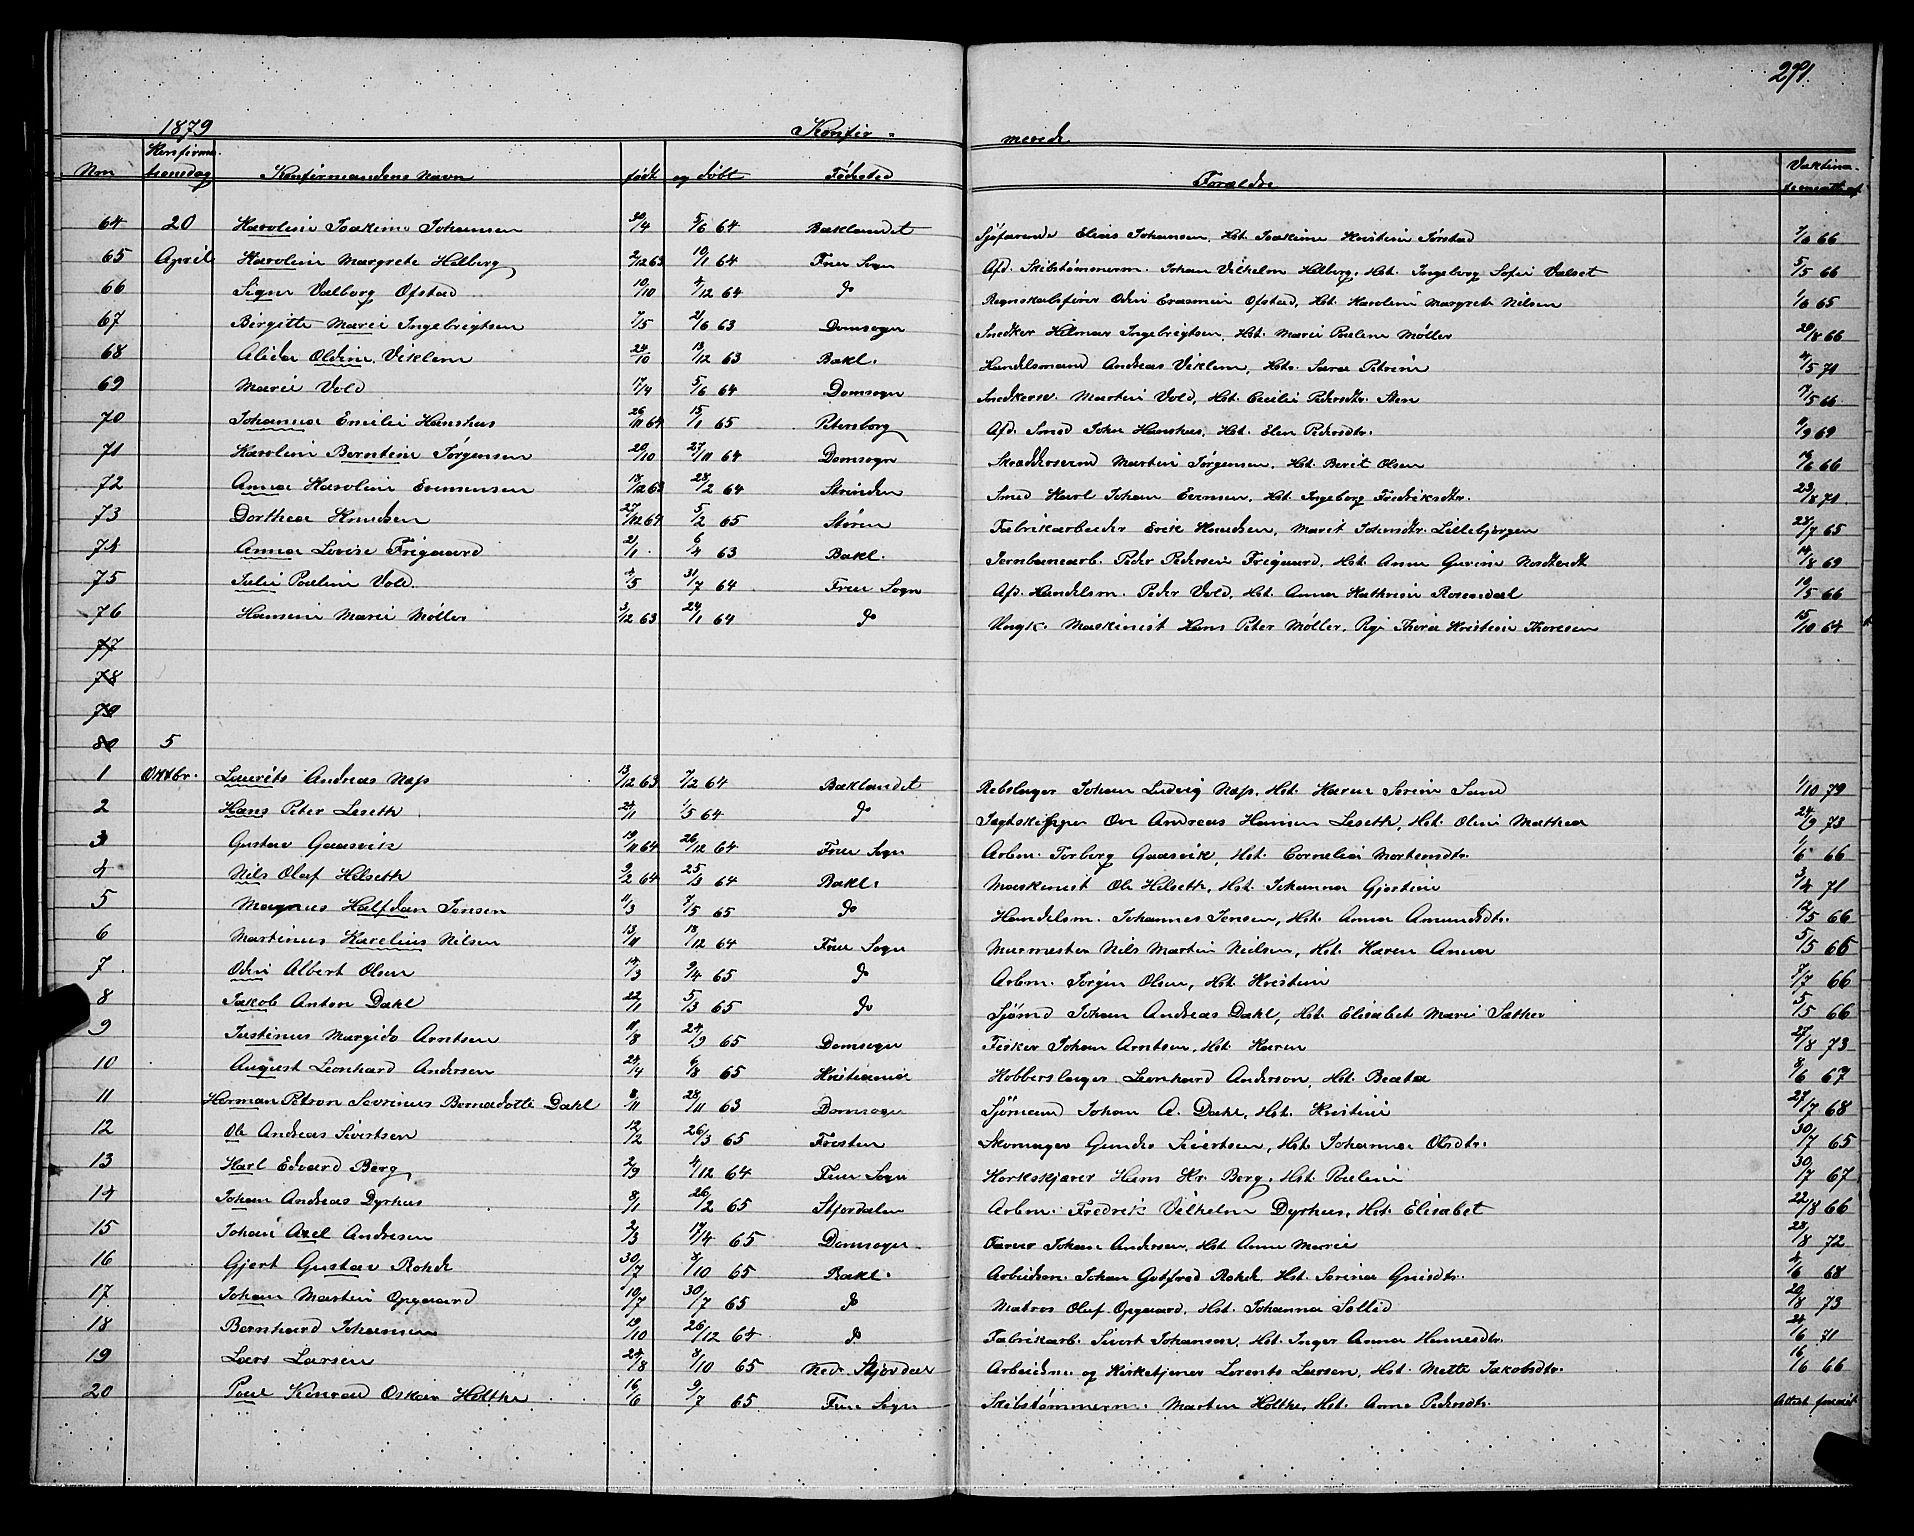 271.
1879 Konfir- merede
Nm Konfirma-tionsdag Konfirmandens Navn født og døbt Fødested Forældre Vaktina-
64 20 Karoline Joakime Johansen 30/4 5/6 64 Baklandet Sjøfarende Elias Johansen, Hst. Joakime Kristine Sørstad 7/6 66
65 April Karoline Margrete Helberg 2/12 63 10/1 64 Frue Sogn Afd. Skibstømmerm. Johan Vilhelm Helberg, Hst. Ingeborg Sofie Valset 5/5 66
66 Signe Valborg Ofstad 10/10 4/12 64 do Regnskabsfører Odin Erasmin Ofstad, Hst. Karoline Margrete Nilsen 1/6 65
67 Birgitte Marie Ingebrigtsen 7/5 21/6 63 Domsogn Snedker Hilmar Ingebrigtsen, Hst. Marie Pauline Møller 20/8 66
68 Alida Oldine Viklem 24/10 13/12 63 Bakl. Handelsmand Andreas Viklem, Hst. Sara Petrine 4/5 71
69 Marie Vold 17/4 5/6 64 Domsogn Snedkersv. Martin Vold, Hst. Cecilie Pedersdtr. Sten 7/5 66
70 Johanna Emilie Hanshus 26/11 64 15/1 65 Petersborg Afd. Smed John Hanshus, Hst. Elen Pedersdtr. 11/9 69
71 Karoline Berntine Jørgensen 20/10 27/11 64 Domsogn Skræddersvend Martin Jørgensen, Hst. Berit Olsen 14/6 66
72 Anna Karoline Evensen 18/12 63 28/2 64 Strinden Smed Karl Johan Evensen, Hst. Ingeborg Fredriksdtr. 23/8 71
73 Dorthea Knudsen 27/12 64 5/2 65 Støren Fabrikarbeider Erik Knudsen, Marit Johnsdtr. Lillebjergen 23/7 65
74 Anna Lovise Frigaard 21/1 6/4 63 Bakl. Jernbanearb. Peder Pedersen Frigaard, Hst. Anna Gurine Nordtvedt 14/8 69
75 Julie Pauline Vold 4/5 31/7 64 Frue Sogn Afd. Handelsm. Peder Vold, Hst. Anna Kathrine Rosendal 19/5 66
76 Hansine Marie Møller 3/12 63 24/1 64 do Ungk. Maskinist Hans Peter Møller, Pige Thora Kristine Thoresen 15/10 64
77
78
79
80 5
1 Oktbr. Laurits Andreas Næss 13/12 63 7/2 64 Baklandet Rebslager Johan Ludvig Næss, Hst. Karen Serine Sand 1/10 79
2 Hans Peter Leseth 24/1 1/5 64 do Jagtskipper Ove Andreas Hansen Leseth, Hst. Oline Mathea 24/9 73
3 Gustav Gaasvik 19/11 64 26/12 64 Frue Sogn Arbm. Torberg Gaasvik, Hst. Cornelia Mortensdtr. 1/6 66
4 Nils Olaf Helseth 9/2 64 25/3 64 Bakl. Maskinist Ole Helseth, Hst. Johanna Gjertine 3/4 71
5 Magnus Halfdan Jensen 11/3 7/5 65 do Handelsm. Johannes Jensen, Hst. Anna Amundsdtr. 12/5 66
6 Martinus Karelius Nilsen 13/11 18/12 64 Frue Sogn Murmester Nils Martin Nielsen, Hst. Karen Anna 5/5 65
7 Odin Albert Olsen 14/3 9/4 65 do Arbm. Jørgen Olsen, Hst. Kristine 7/7 66
8 Jakob Anton Dahl 22/1 5/3 65 do Sjømd Johan Andreas Dahl, Hst. Elisabet Marie Sather 5/5 66
9 Justinus Margido Arntsen 11/8 24/9 65 Domsogn Fisker Johan Arntsen, Hst. Karen 27/8 73
10 August Leonhard Andersen 24/4 6/8 65 Kristiania Kobberslager Leonhard Anderson, Hst. Beata 8/6 67
11 Herman Petron Severinus Bernadotte Dahl 8/11 28/11 63 Domsogn Sjømand Johan A. Dahl, Hst. Kristine 27/7 68
12 Ole Andreas Sivertsen 12/2 26/3 65 Frosten Skomager Gunder Sivertsen, Hst. Johanna Olsdtr. 30/7 65
13 Karl Edvard Berg 2/9 4/12 64 Frue Sogn Korkskjærer Hans Kr. Berg, Hst. Pauline 30/7 67
14 Johan Andreas Dyrhus 8/1 26/2 65 Stjordalen Arbm. Fredrik Vilhelm Dyrhus, Hst. Elisabet 22/8 66
15 Johan Axel Andresen 2/3 17/4 65 Domsogn Farver Johan Andersen, Hst. Anne Marie 28/8 72
16 Gjert Gustav Rohde 30/7 8/10 65 Bakl. Arbeidsm. Johan Gotfred Rohde, Hst. Serina Gnisdtr. 4/6 68
17 Johan Martin Opgaard 10/7 30/7 65 do Matros Olaf Opgaard, Hst. Johanna Sollid 20/8 73
18 Bernhard Johansen 19/10 26/12 64 do Fabrikarb. Sivert Johansen, Hst. Inger Anna Hannesdtr. 24/6 71
19 Lars Larsen 24/8 8/10 65 Ned. Stjordal Arbeidsm. og Kirketjener Lorents Larsen, Hst. Mette Jakobsdtr. 16/6 66
20 Paul Konrad Oskar Holthe 16/6 9/7 65 Frue Sogn Skibstømmerm. Martin Holthe, Hst. Anne Pedersdtr. Attest forevist